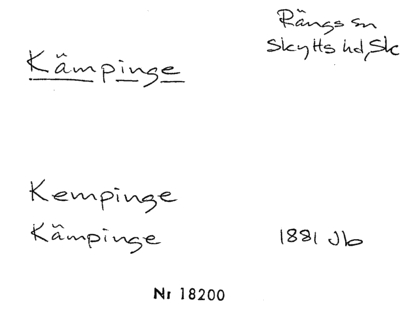 Kämpinge
Rängs sn
Skytts hd, Sk
Kempinge
Kämpinge 1881 Jb
Nr 18200